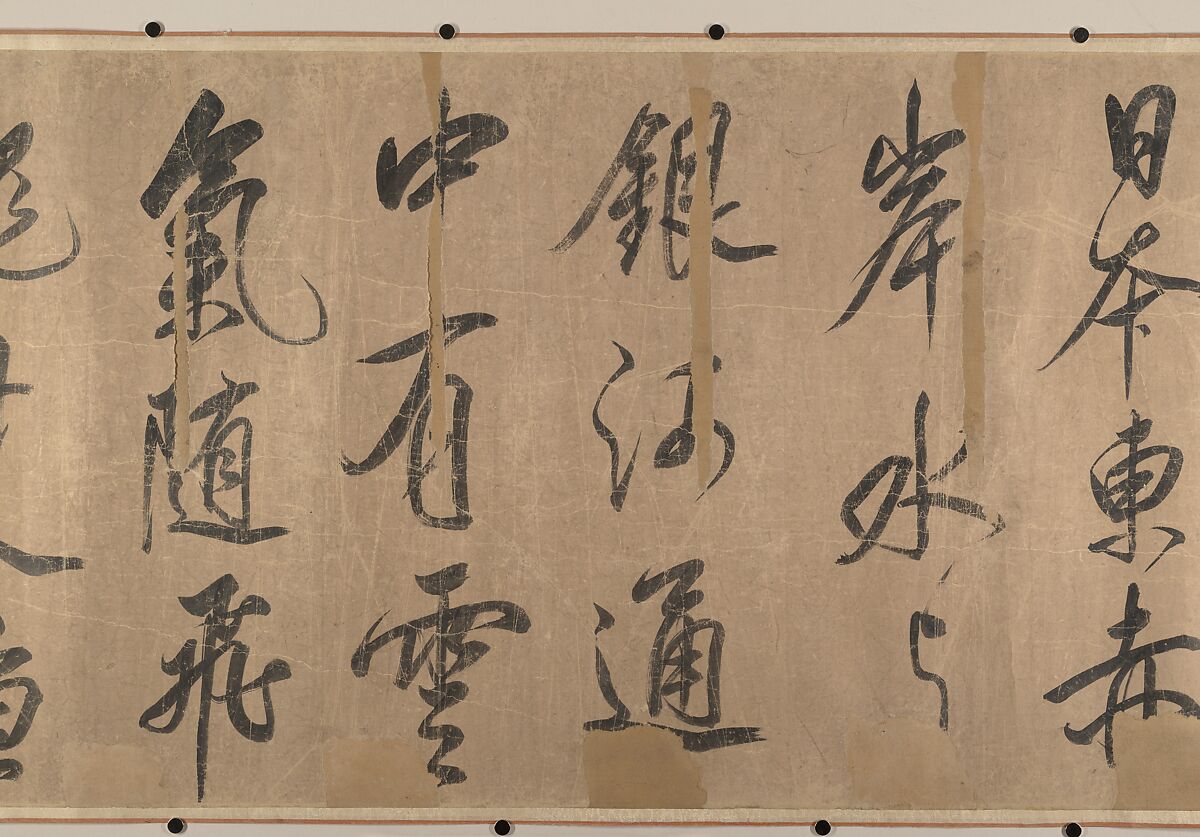 日本東赤
岸水与
銀河通
中有雲
氣随飛